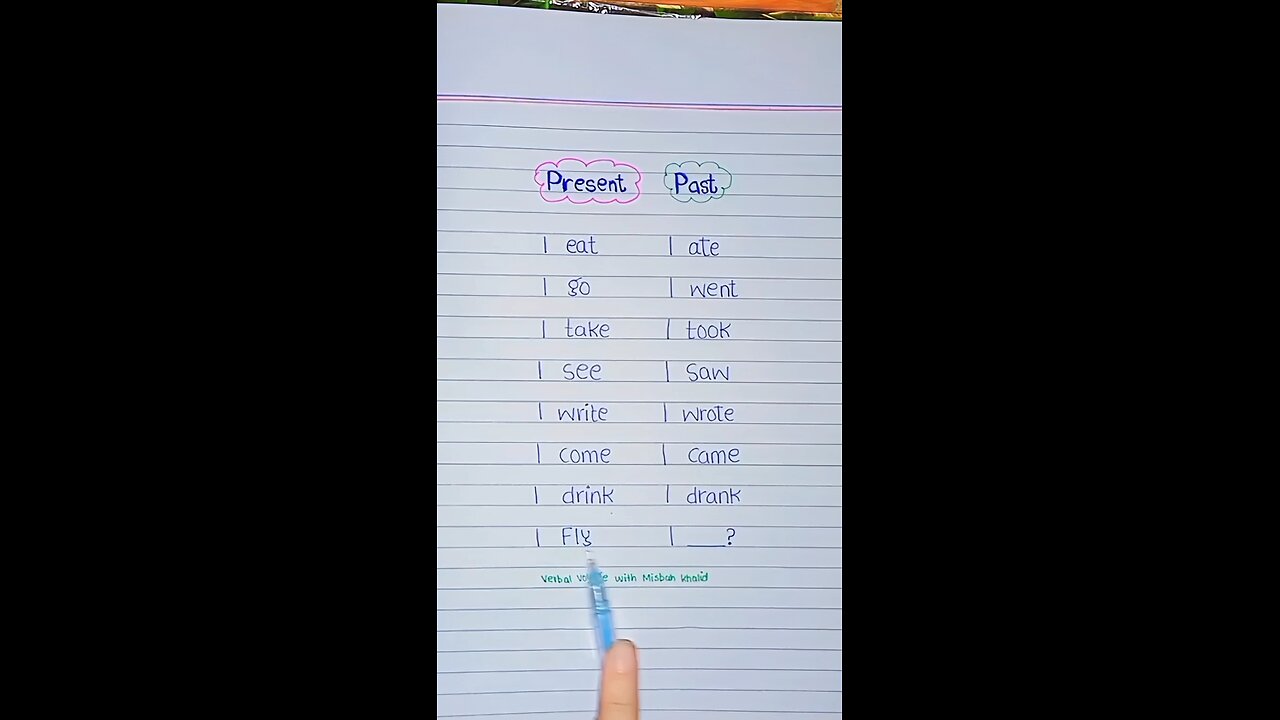 Present Past
I eat I ate
I go I went
I take I took
I see I saw
I write I wrote
I come I came
I drink I drank
I Fly I ___?
Verbal with Misbah Khalid